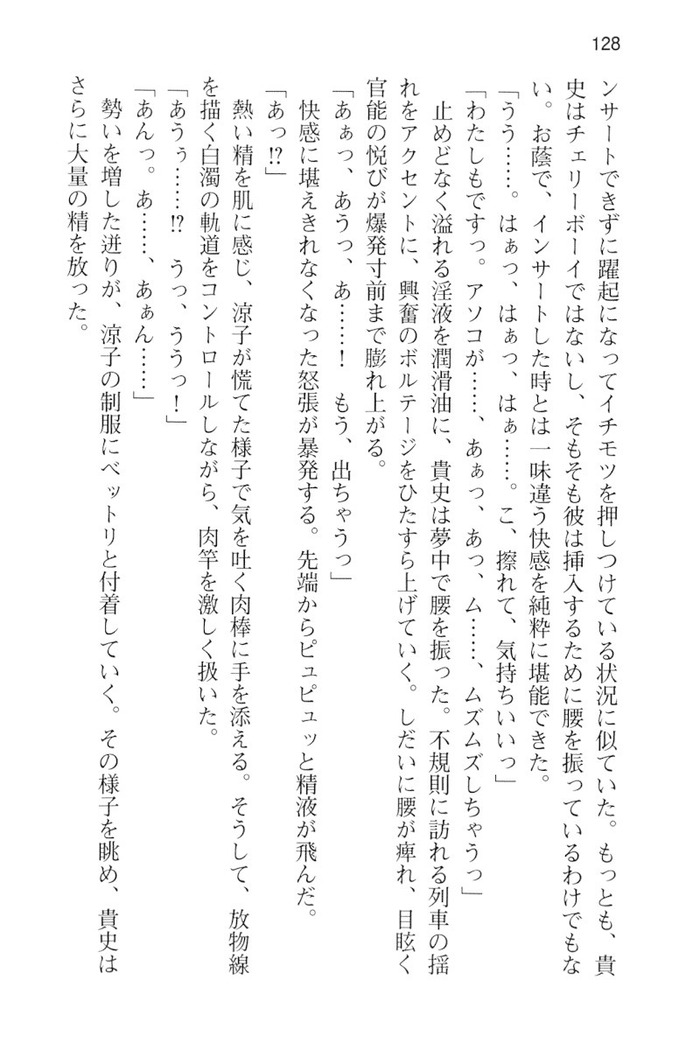 128
ンサートできずに躍起になってイチモツを押しつけている状況に似ていた。もっとも、貴
史はチェリーボーイではないし、そもそも彼は挿入するために腰を振っているわけでもな
い。お蔭で、インサートした時とは一味違う快感を純粋に堪能できた。
「うう……。はぁっ、はぁっ、はぁ……。こ、擦れて、気持ちいいっ」
「わたしもですっ。アソコが……、あぁっ、あっ、ム……、ムズムズしちゃうっ」
止めどなく溢れる淫液を潤滑油に、貴史は夢中で腰を振った。不規則に訪れる列車の揺
れをアクセントに、興奮のボルテージをひたすら上げていく。しだいに腰が痺れ、目眩く
官能の悦びが爆発寸前まで膨れ上がる。
「あぁっ、あうっ、あ……！　もう、出ちゃうっ」
快感に堪えきれなくなった怒張が暴発する。先端からピュピュッと精液が飛んだ。
「あっ!?」
熱い精を肌に感じ、涼子が慌てた様子で気を吐く肉棒に手を添える。そうして、放物線
を描く白濁の軌道をコントロールしながら、肉竿を激しく扱いた。
「あうぅ……!?　うっ、ううっ！」
「あんっ。あ……、あぁん……」
勢いを増した迸りが、涼子の制服にベットリと付着していく。その様子を眺め、貴史は
さらに大量の精を放った。